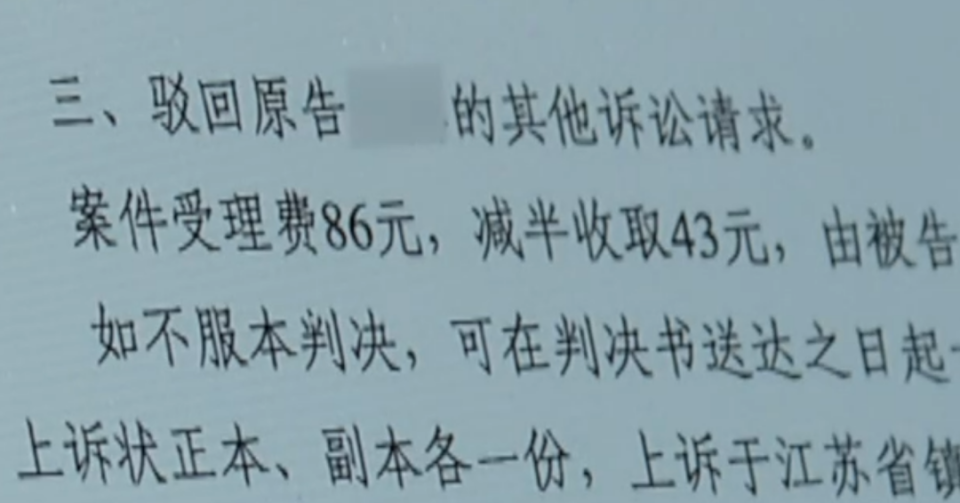 三、驳回原告 的其他诉讼请求。
案件受理费86元，减半收取43元，由被告
如不服本判决，可在判决书送达之日起
上诉状正本、副本各一份，上诉于江苏省镇